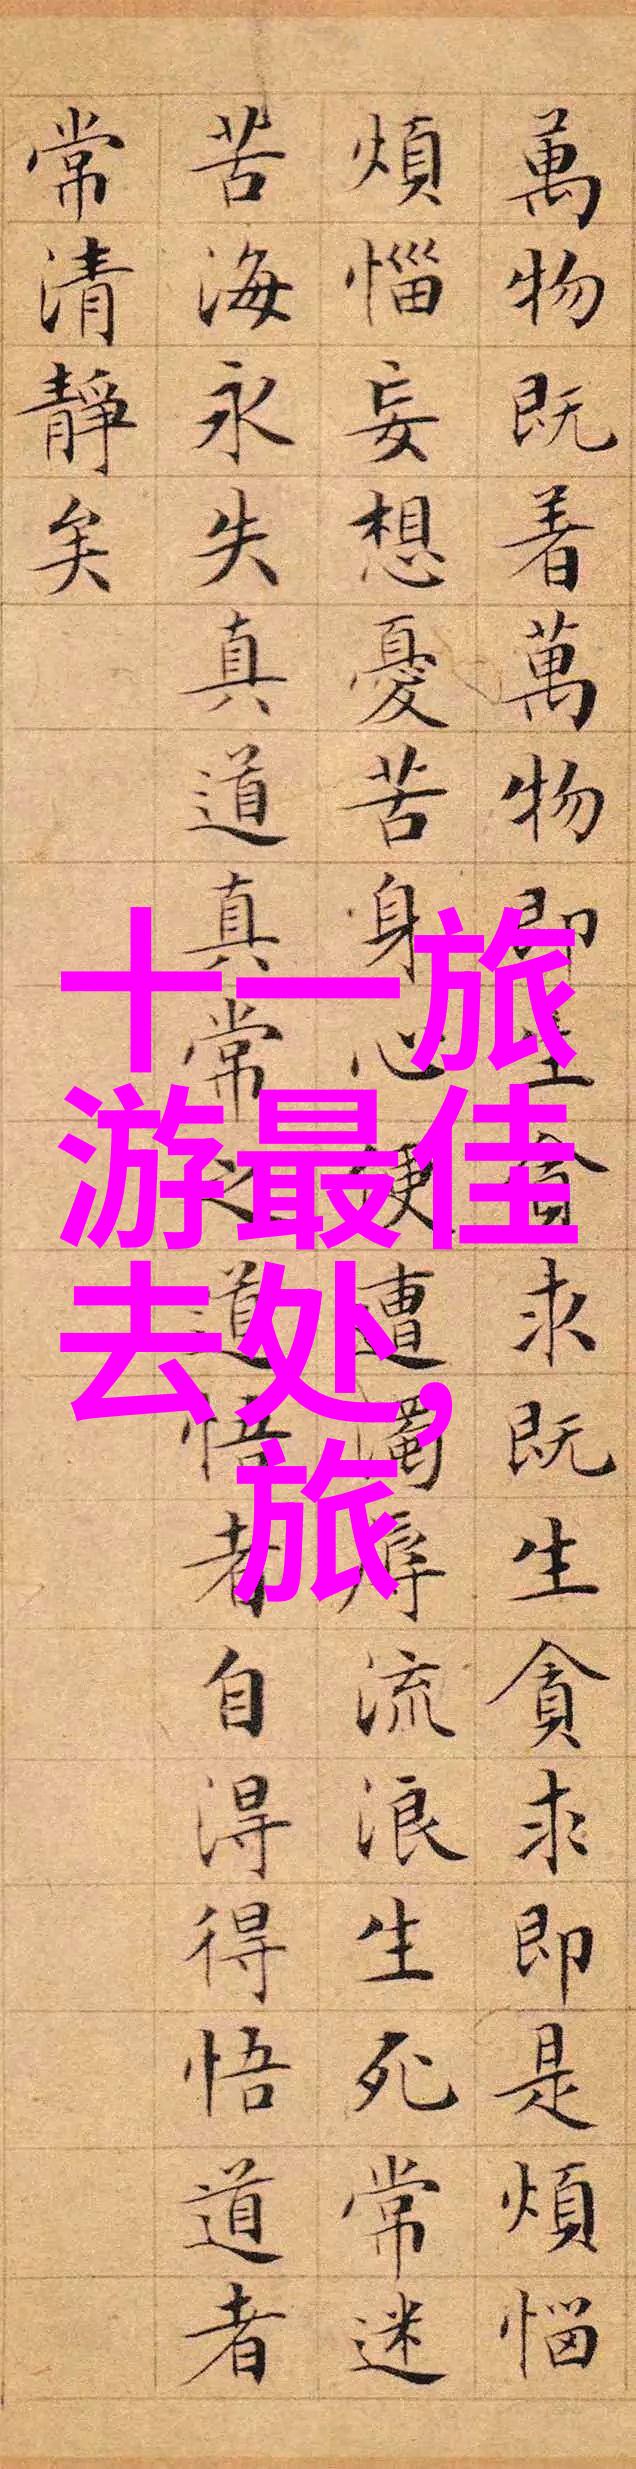 萬物既着萬物即生貪求既生貪求即是煩惱
煩惱妄想憂苦身心便遭濁辱流浪生死常迷
苦海永失真道真常之道悟者自得得悟道者
常清靜矣
十一旅
游最佳
去处,
旅